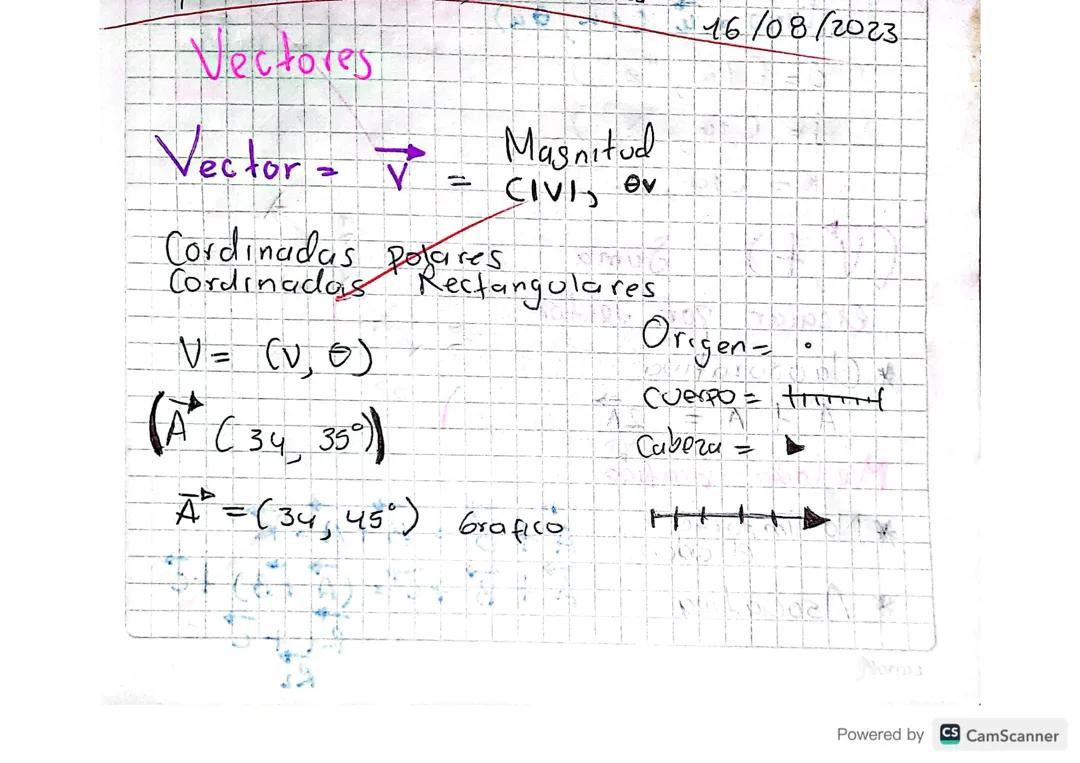 16/08/2023
Vectores
Vector = V = Magnitud
(|V|, θv
Cordinadas polares
Cordinadas Rectangulares
V = (V, θ)
(A (34, 35°))
A = (34, 45°) Grafico
Origen = •
Cuerpo =
Cabeza =
Powered by CS CamScanner